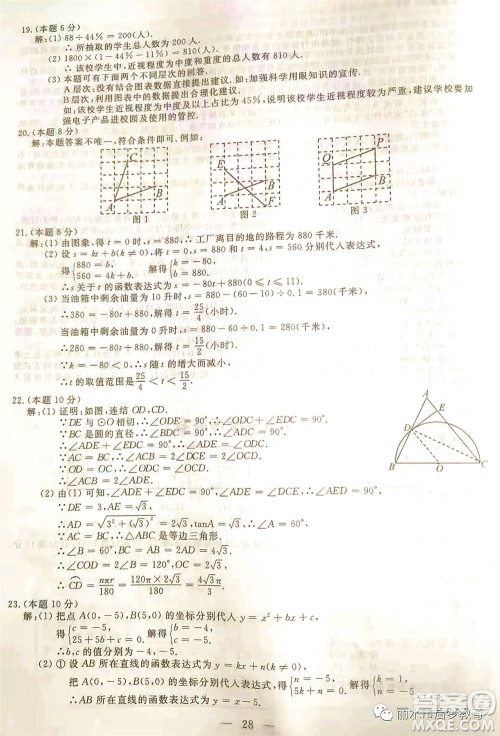 19.(本题6分)
解:(1)88÷44%=200(人).
∴所抽取的学生总人数为200人.
(2)1800×(1-44%-11%)=810(人).
∴该校学生中近视程度为中度和重度的总人数有810人.
(3)本题可有下面两个不同层次的回答.
A层次:没有结合图表数据直接提出建议.如:加强科学用眼知识的宣传.
B层次:利用图表中的数据提出合理化建议.
如:该校学生近视程度为中度及以上占比为45%,说明该校学生近视程度较为严重,建议学校要加
强电子产品进校园及使用的管控.
20.(本题8分)
解:本题答案不唯一,符合条件即可.例如:
C
A
B
图1
E
B
A
F
图2
Q
P
B
A
图3
21.(本题8分)
解:(1)由图象,得t=0时,s=880,∴工厂离目的地的路程为880千米.
(2)设s=kt+b(k≠0),将t=0,s=880和t=4,s=560分别代入表达式,
得{880=b, 560=4k+b. 解得{k=-80, b=880.
∴s关于t的函数表达式为s=-80t+880(0≤t≤11).
(3)当油箱中剩余油量为10升时,s=880-(60-10)÷0.1=380(千米),
∴380=-80t+880,解得t=25/4(小时).
当油箱中剩余油量为0升时,s=880-60÷0.1=280(千米),
∴280=-80t+880,解得t=15/2(小时).
∵k=-80<0,∴s随t的增大而减小,
∴t的取值范围是25/4<t<15/2.
22.(本题10分)
解:(1)证明:如图,连结OD,CD.
∵DE与⊙O相切,∴∠ODE=90°,∴∠ODC+∠EDC=90°.
∵BC是圆的直径,∴∠BDC=90°,∴∠ADC=90°,
∴∠ADE+∠EDC=90°,∴∠ADE=∠ODC.
∵AC=BC,∴∠ACB=2∠DCE=2∠OCD.
∵OD=OC,∴∠ODC=∠OCD.
∴∠ACB=2∠ADE.
A
E
D
B
O
C
(2)由(1)可知,∠ADE+∠EDC=90°,∠ADE=∠DCE,∴∠AED=90°,
∵DE=3,AE=√3,
∴AD=√(3²+(√3)²)=2√3,tanA=√3,∴∠A=60°.
∵AC=BC,∴△ABC是等边三角形.
∴∠B=60°,BC=AB=2AD=4√3,
∴∠COD=2∠B=120°,OC=2√3,
∴CD=nπr/180=120π×2√3/180=4√3/3π.
23.(本题10分)
解:(1)把点A(0,-5),B(5,0)的坐标分别代入y=x²+bx+c,
得{c=-5, 25+5b+c=0. 解得{b=-4, c=-5.
∴b,c的值分别为-4,-5.
(2)①设AB所在直线的函数表达式为y=kx+n(k≠0),
把A(0,-5),B(5,0)的坐标分别代入表达式,得{n=-5, 5k+n=0. 解得{k=1, n=-5.
∴AB所在直线的函数表达式为y=x-5.
— 28 —